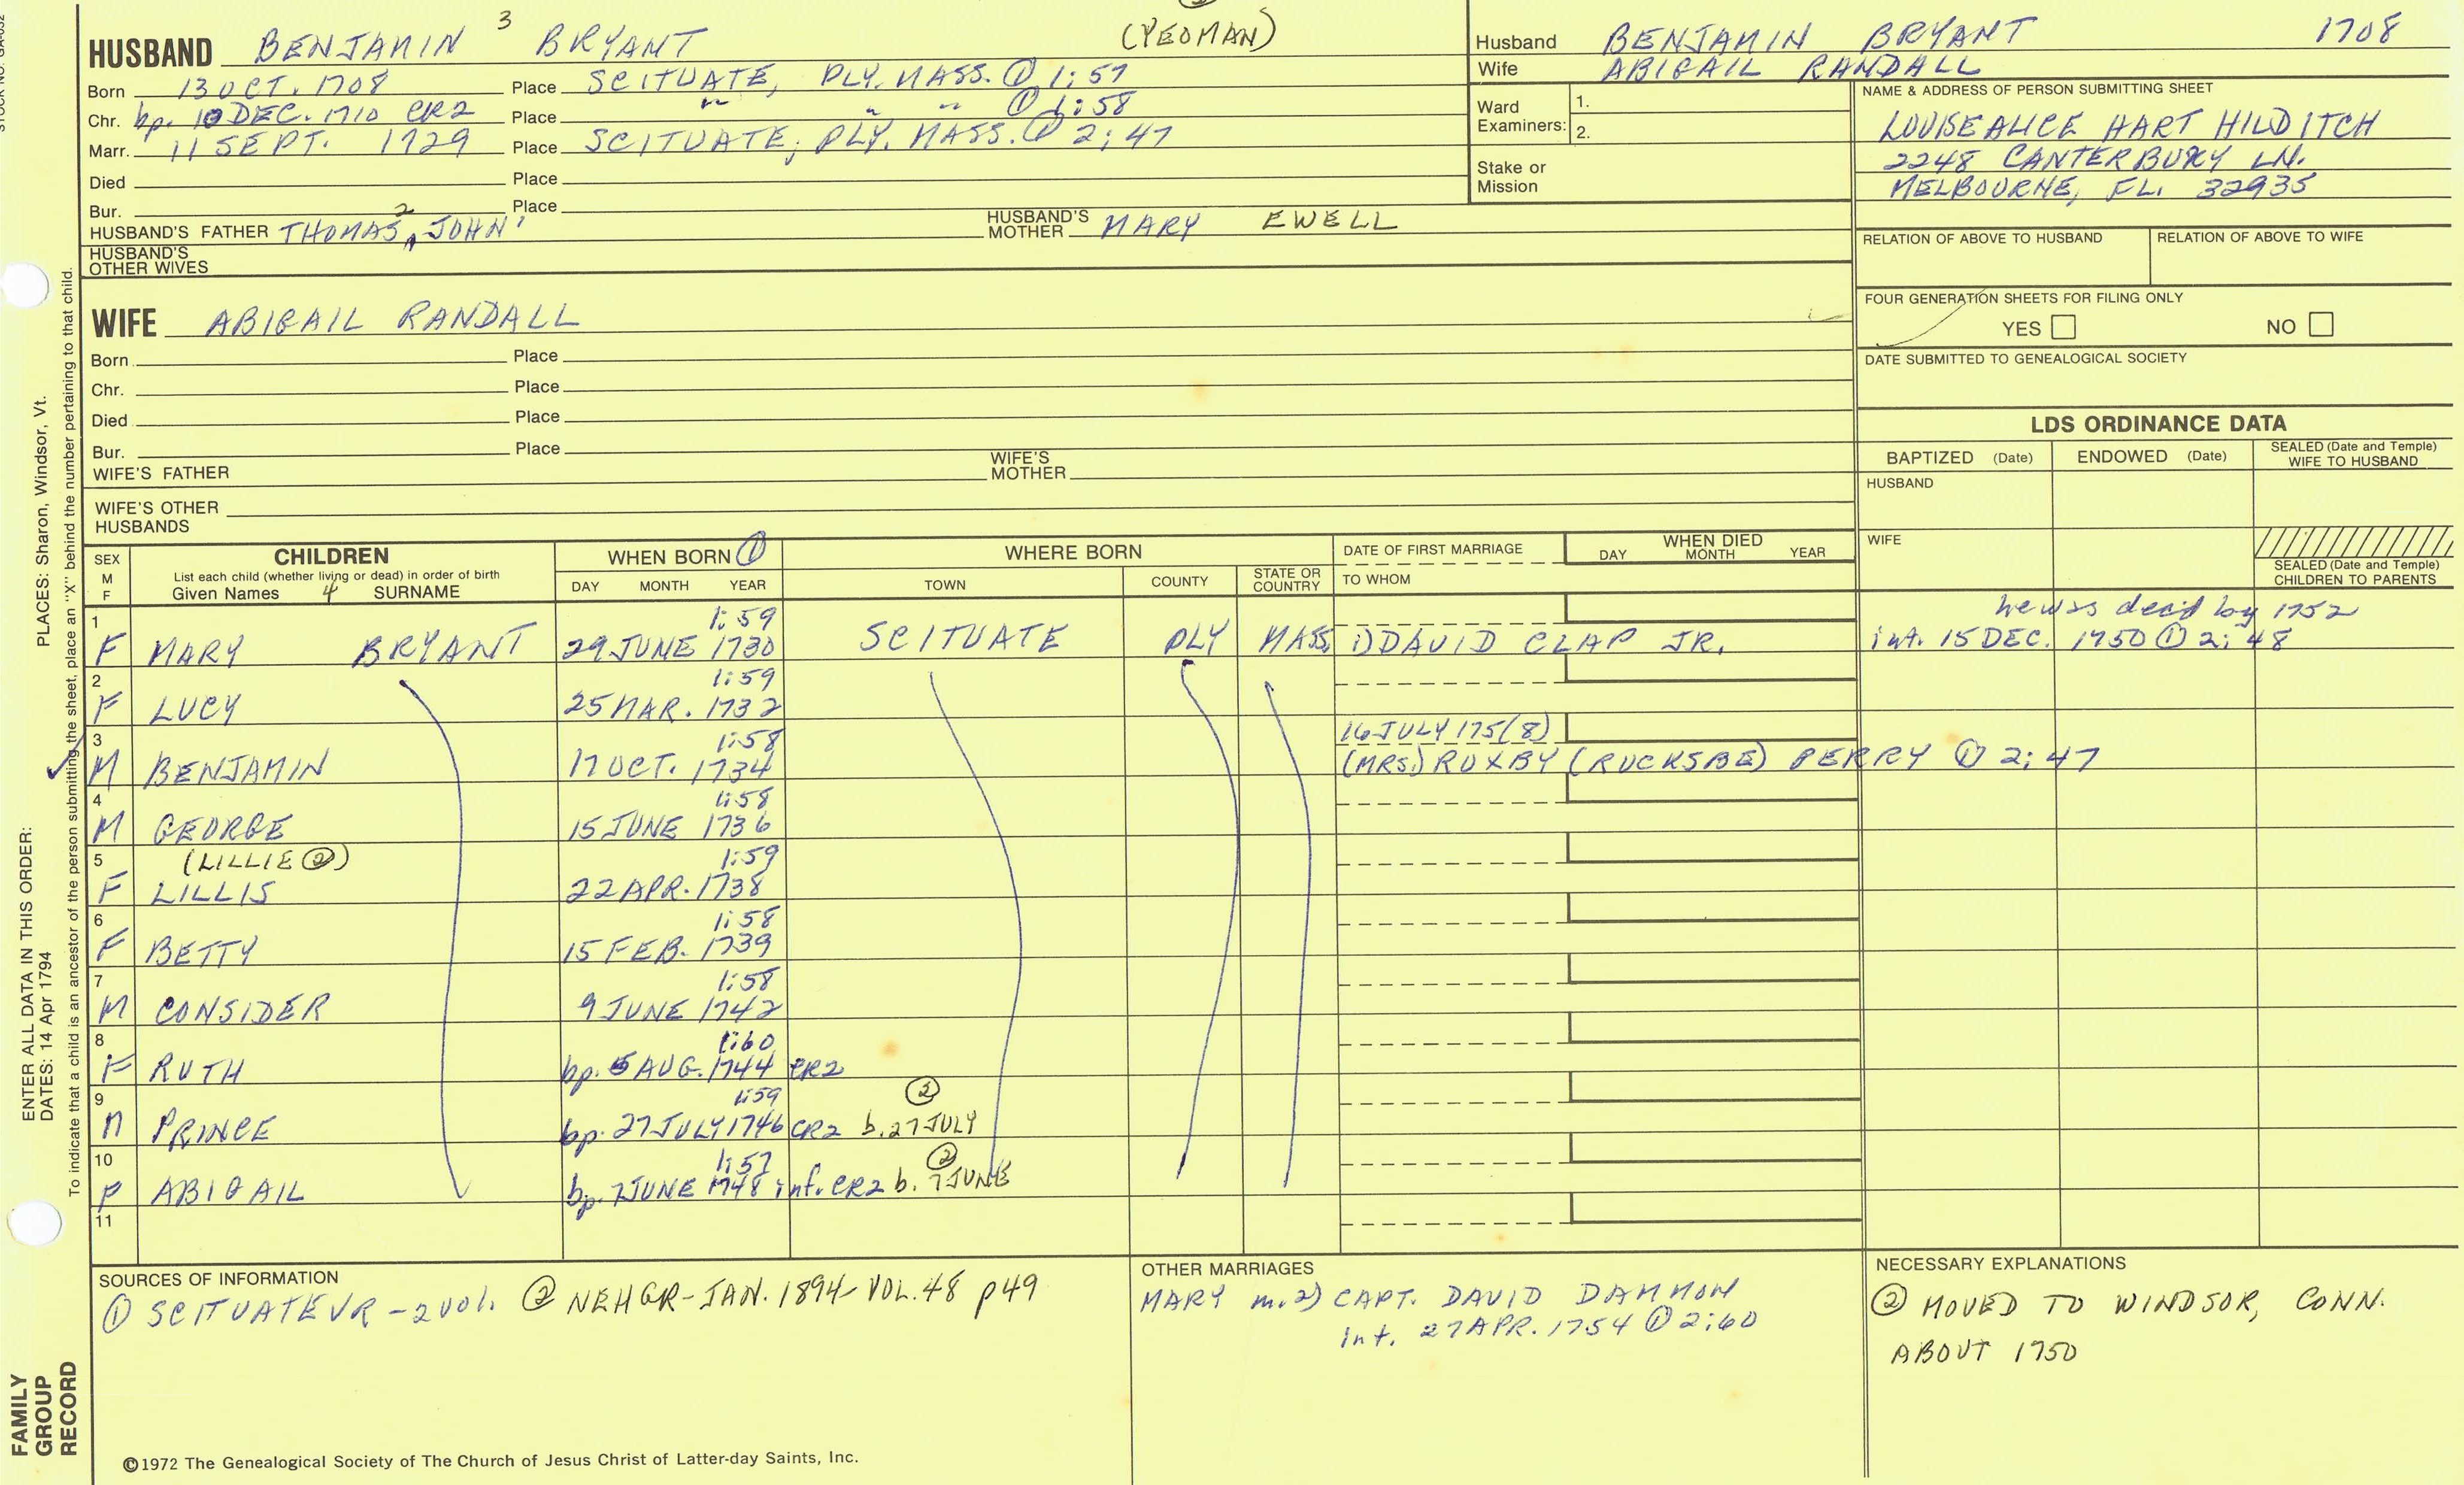 HUSBAND BENJAMIN 3 BRYANT (YEOMAN)
Born 13 OCT. 1708 Place SCITUATE, PLY. MASS. ① 1:57
Chr. bp. 10 DEC. 1710 CR2 Place " " " ① 1:58
Marr. 11 SEPT. 1729 Place SCITUATE, PLY. MASS. ① 2:47
Died Place
Bur. Place
HUSBAND'S FATHER THOMAS 2, JOHN 1 HUSBAND'S MOTHER MARY EWELL
HUSBAND'S OTHER WIVES
Husband BENJAMIN BRYANT 1708
Wife ABIGAIL RANDALL
Ward Examiners: 1.
2.
Stake or Mission
NAME & ADDRESS OF PERSON SUBMITTING SHEET
LOUISE ALICE HART HILDITCH
2248 CANTERBURY LN.
MELBOURNE, FL. 32935
RELATION OF ABOVE TO HUSBAND RELATION OF ABOVE TO WIFE
FOUR GENERATION SHEETS FOR FILING ONLY
YES NO
DATE SUBMITTED TO GENEALOGICAL SOCIETY
WIFE ABIGAIL RANDALL
Born Place
Chr. Place
Died Place
Bur. Place
WIFE'S FATHER WIFE'S MOTHER
WIFE'S OTHER HUSBANDS
LDS ORDINANCE DATA
BAPTIZED (Date) ENDOWED (Date) SEALED (Date and Temple) WIFE TO HUSBAND
HUSBAND
WIFE
SEALED (Date and Temple) CHILDREN TO PARENTS
SEX M F
CHILDREN
List each child (whether living or dead) in order of birth
Given Names 4 SURNAME
WHEN BORN ①
DAY MONTH YEAR
WHERE BORN
TOWN COUNTY STATE OR COUNTRY
DATE OF FIRST MARRIAGE
TO WHOM
WHEN DIED
DAY MONTH YEAR
1 1:59 he was dead by 1752
F MARY BRYANT 29 JUNE 1730 SCITUATE PLY MASS. 1) DAVID CLAP JR. int. 15 DEC. 1750 ① 2:48
2 1:59
F LUCY 25 MAR. 1732
3 1:58 16 JULY 175(8)
M BENJAMIN 17 OCT. 1734 (MRS.) RUXBY (RUCKSBE) PERRY ① 2:47
4 1:58
M GEORGE 15 JUNE 1736
5 (LILLIE ②) 1:59
F LILLIS 22 APR. 1738
6 1:58
F BETTY 15 FEB. 1739
7 1:58
M CONSIDER 9 JUNE 1742
8 1:60
F RUTH bp. 5 AUG. 1744 CR2
9 1:59 ②
M PRINCE bp. 27 JULY 1746 CR2 b. 27 JULY
10 1:57 ②
F ABIGAIL bp. 7 JUNE 1748 inf. CR2 b. 7 JUNE
11
SOURCES OF INFORMATION
① SCITUATE VR - 2 vol. ② NEHGR - JAN. 1894 - VOL. 48 p49
OTHER MARRIAGES
MARY m. 2) CAPT. DAVID DAMMON
int. 27 APR. 1754 ① 2:60
NECESSARY EXPLANATIONS
② MOVED TO WINDSOR, CONN.
ABOUT 1750
©1972 The Genealogical Society of The Church of Jesus Christ of Latter-day Saints, Inc.
ENTER ALL DATA IN THIS ORDER:
DATES: 14 Apr 1794 PLACES: Sharon, Windsor, Vt.
To indicate that a child is an ancestor of the person submitting the sheet, place an "X" behind the number pertaining to that child.
FAMILY GROUP RECORD